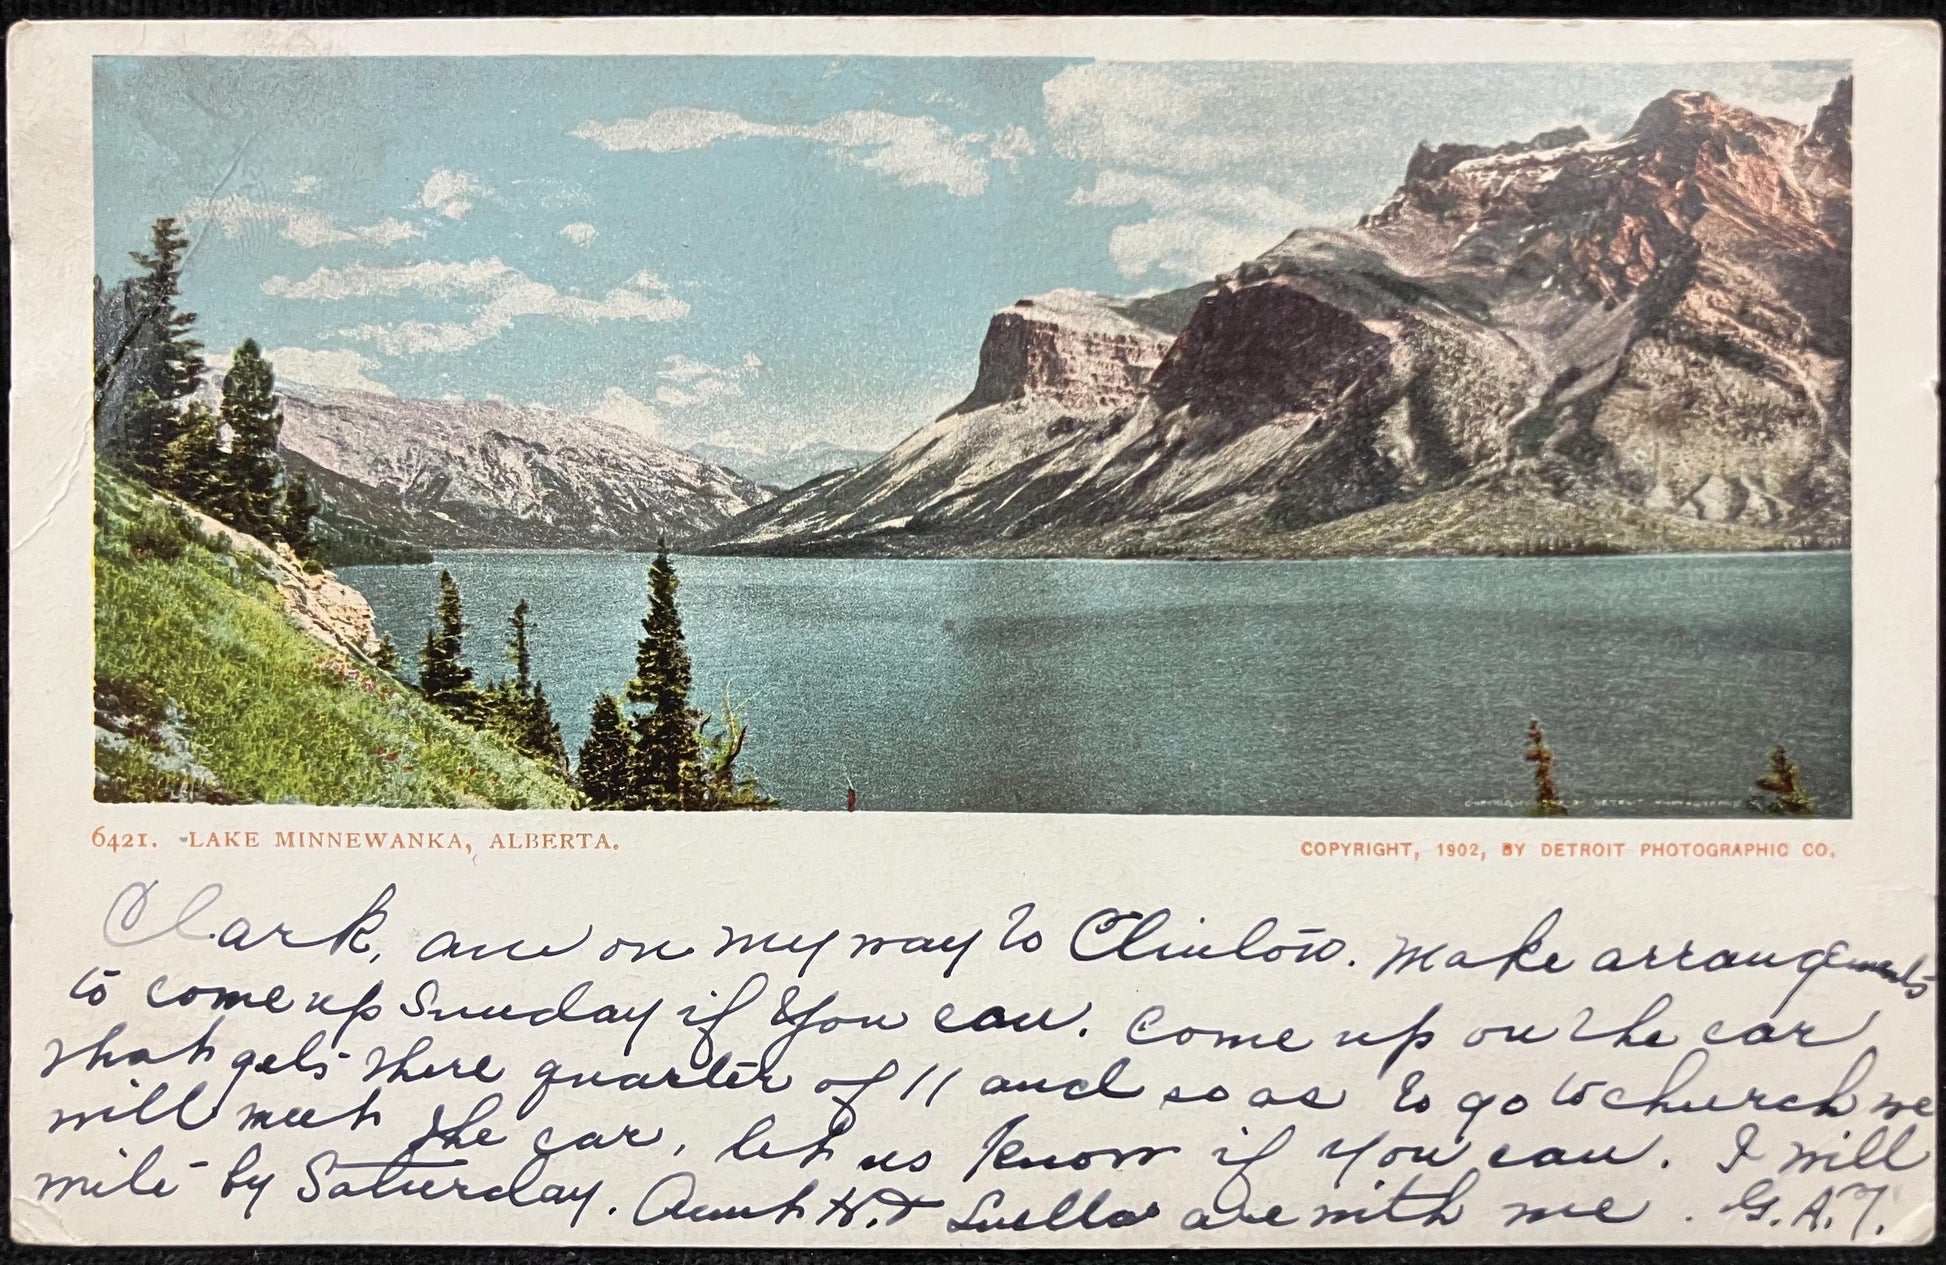 COPYRIGHT 1902 BY DETROIT PHOTOGRAPHIC
6421. LAKE MINNEWANKA, ALBERTA.
COPYRIGHT, 1902, BY DETROIT PHOTOGRAPHIC CO.
Clark, am on my way to Clinton. Make arrangements
to come up Sunday if you can. Come up on the car
that gets there quarter of 11 and so as to go to church we
will meet the car, let us know if you can. I will
write by Saturday. Aunt H. + Luella are with me. G.A.T.